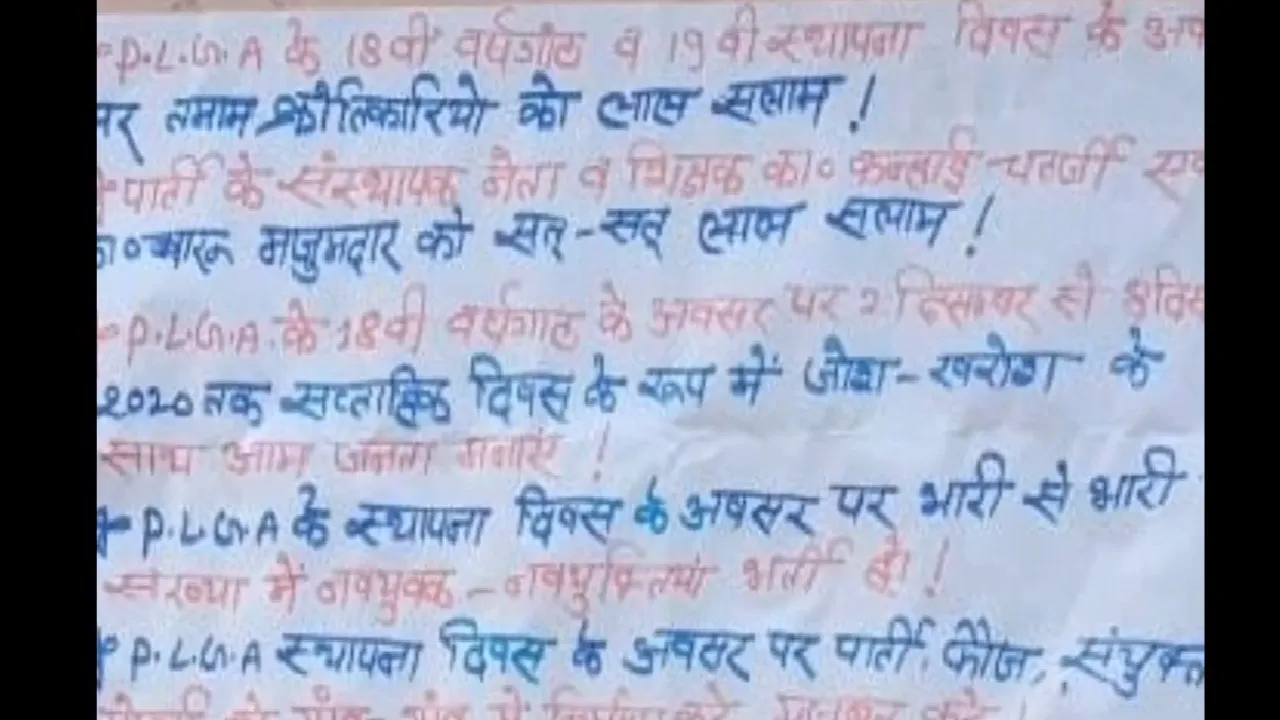 P.L.G.A के 18वीं वर्षगांठ व 19वी स्थापना दिवस के अव
सर तमाम क्रांतिकारियो को लाल सलाम !
पार्टी के संस्थापक नेता व शिक्षक का० कन्हाई चटर्जी एव
का० चारू माजुमदार को सत्-सत् लाल सलाम !
P.L.G.A. के 18वी वर्षगाठ के अवसर पर 2 दिसम्बर से 8 दिस
2020 तक सप्ताहिक दिवस के रूप में जोश-खरोश के
साथ आम जनता मनाएं !
P.L.G.A के स्थापना दिवस के अवसर पर भारी से भारी
संख्या में नवयुवक - नवयुवतियां भर्ती हों !
P.L.G.A स्थापना दिवस के अवसर पर पार्टी, फौज, संयुक्त